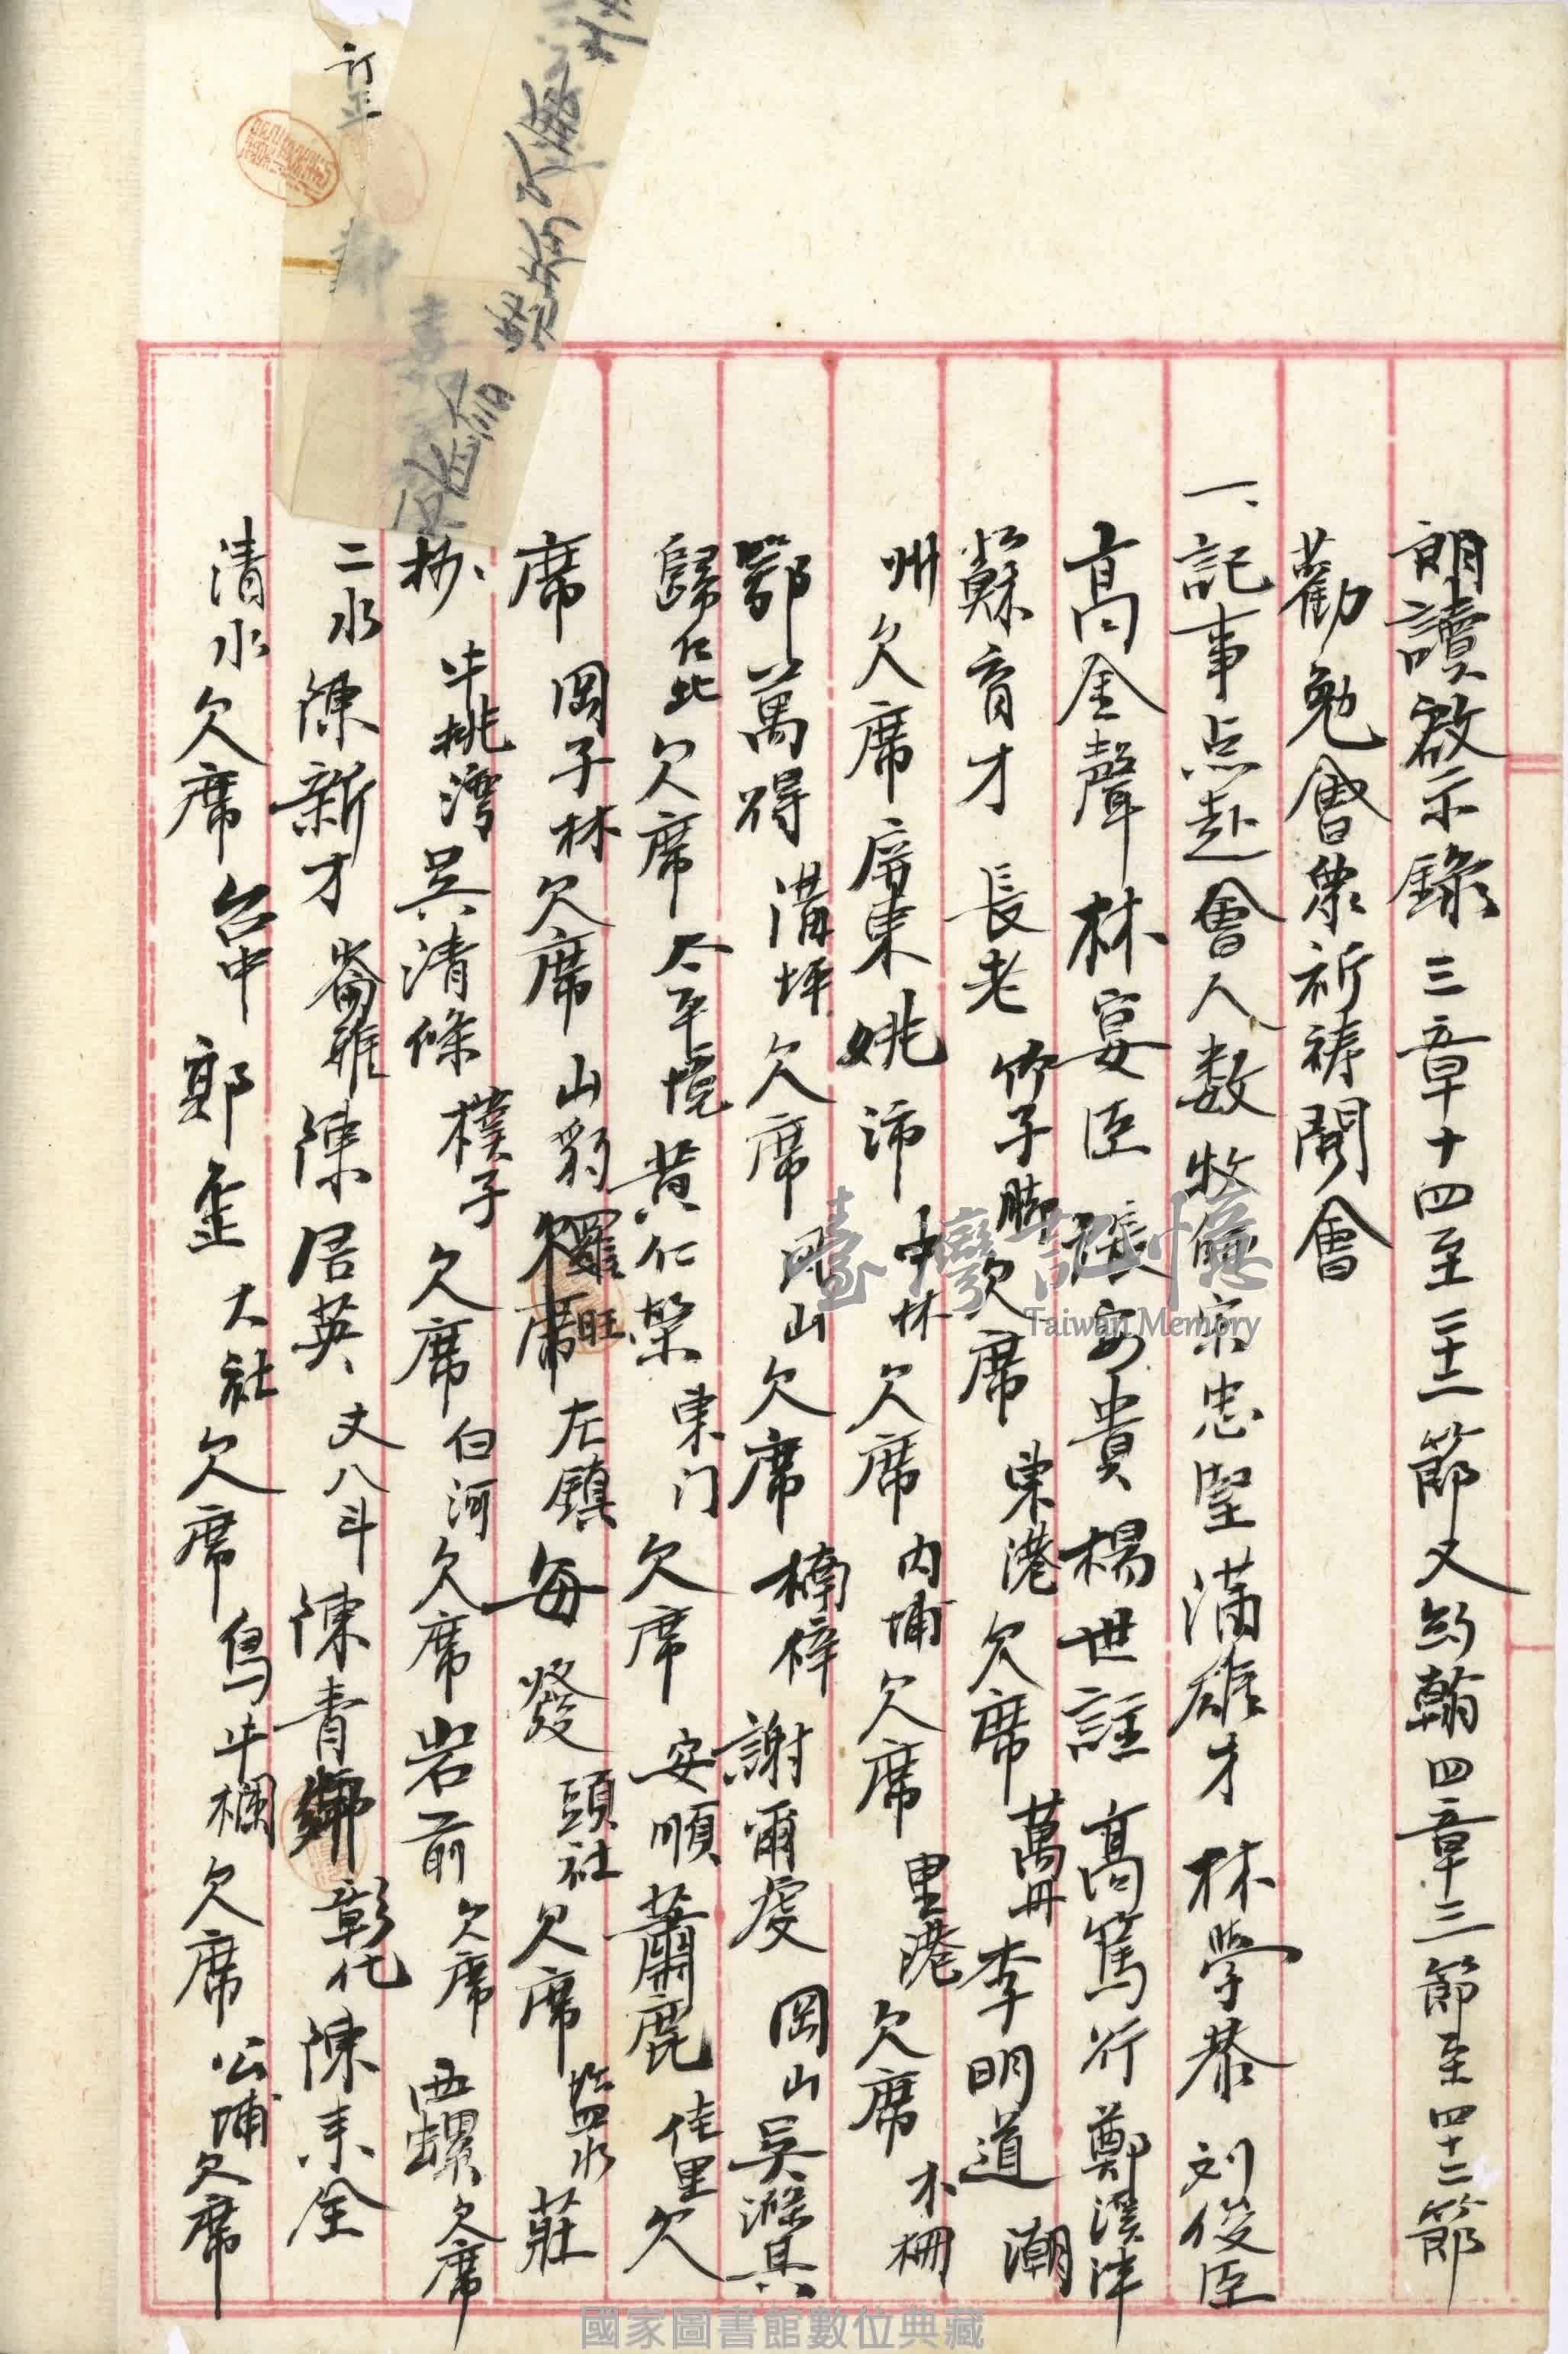 朗讀啟示錄三章十四至二十二節又約翰四章三節至四十二節
勸勉會衆祈祷閉會
一、記事点赴會人数牧師宋忠堅滿雄才 林学恭 刘俊臣
高金聲 林宴臣 張安貴 楊世註 高篤行 鄭溪泮
蘇育才 長老 竹子脚欠席 東港欠席 萬丹李明道 潮
州欠席 屏東姚沛 中林欠席 內埔欠席 里港欠席 木柵
鄂萬得 溝坪欠席 岡山欠席 楠梓謝爾虔 岡山吳滌其
歸仁北欠席 太平境黃仁榮 東门欠席 安順蕭鹿 佳里欠
席 岡子林欠席 山豹羅旺 左鎮每發 頭社欠席 监水莊
抄 牛桃灣吳清條 樸子欠席 白河欠席 岩前欠席 西螺欠席
二水陳新才 崙雅陳居英 丈八斗陳青 彰化陳来全
清水欠席 台中郭歪 大社欠席 鳥牛欄欠席 公埔欠席
訂正
臺灣記憶
Taiwan Memory
國家圖書館數位典藏